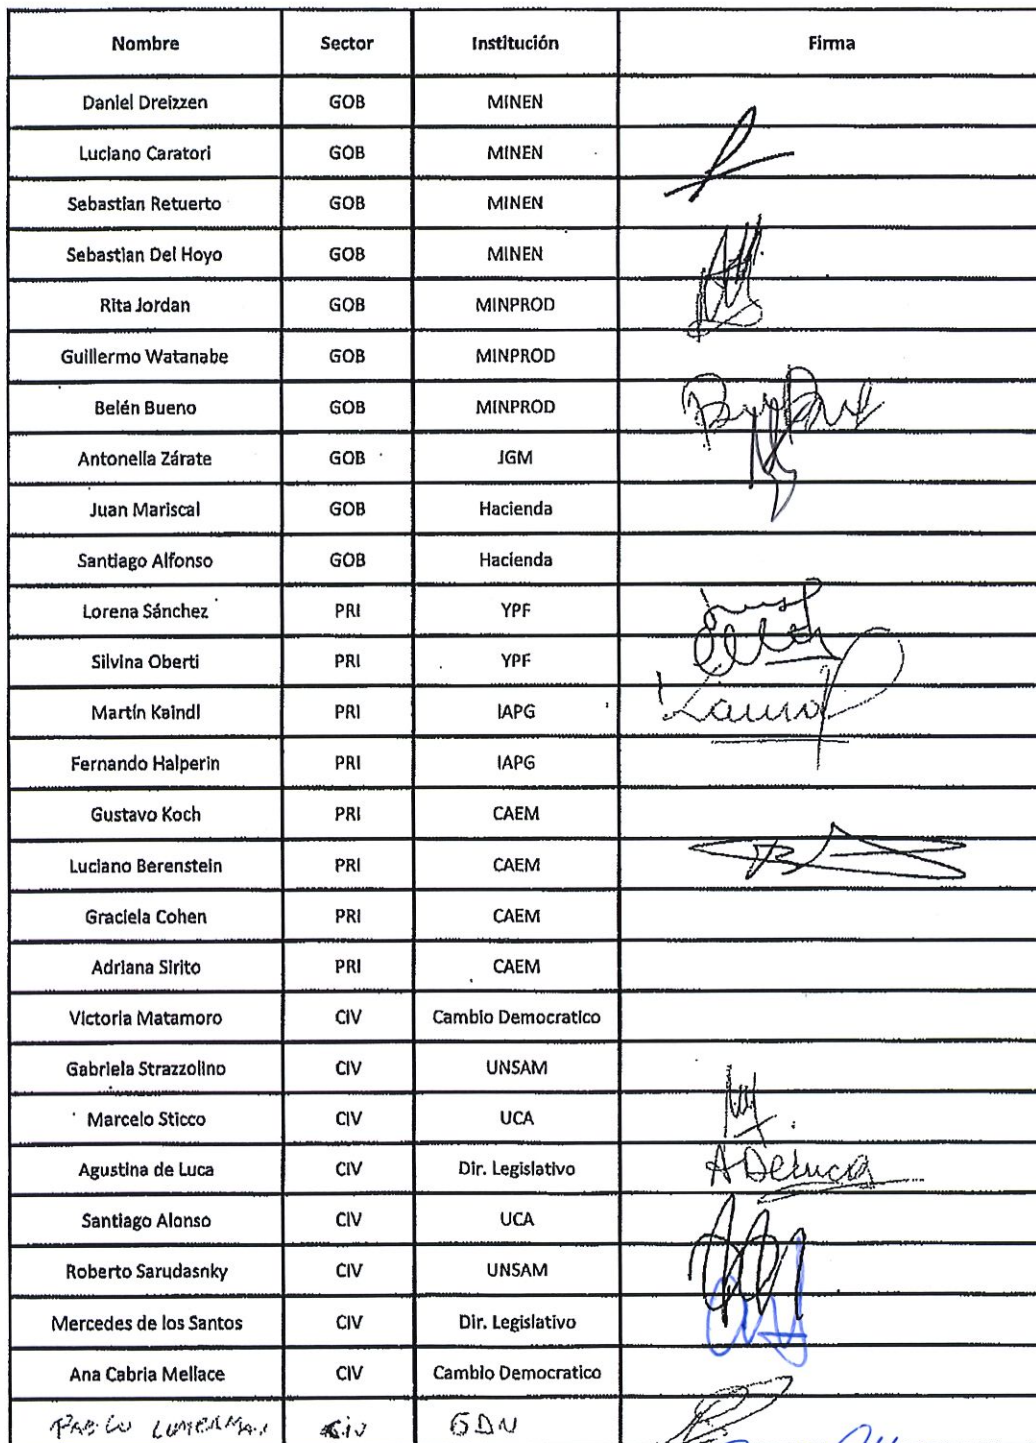 Nombre Sector Institución Firma
Daniel Dreizzen GOB MINEN
Luciano Caratori GOB MINEN
Sebastian Retuerto GOB MINEN
Sebastian Del Hoyo GOB MINEN
Rita Jordan GOB MINPROD
Guillermo Watanabe GOB MINPROD
Belén Bueno GOB MINPROD
Antonella Zárate GOB JGM
Juan Mariscal GOB Hacienda
Santiago Alfonso GOB Hacienda
Lorena Sánchez PRI YPF
Silvina Oberti PRI YPF
Martín Kaindl PRI IAPG
Fernando Halperin PRI IAPG
Gustavo Koch PRI CAEM
Luciano Berenstein PRI CAEM
Graciela Cohen PRI CAEM
Adriana Sirito PRI CAEM
Victoria Matamoro CIV Cambio Democratico
Gabriela Strazzolino CIV UNSAM
Marcelo Sticco CIV UCA
Agustina de Luca CIV Dir. Legislativo A DeLuca
Santiago Alonso CIV UCA
Roberto Sarudasnky CIV UNSAM
Mercedes de los Santos CIV Dir. Legislativo
Ana Cabria Mellace CIV Cambio Democratico
PABLO CIV GDN